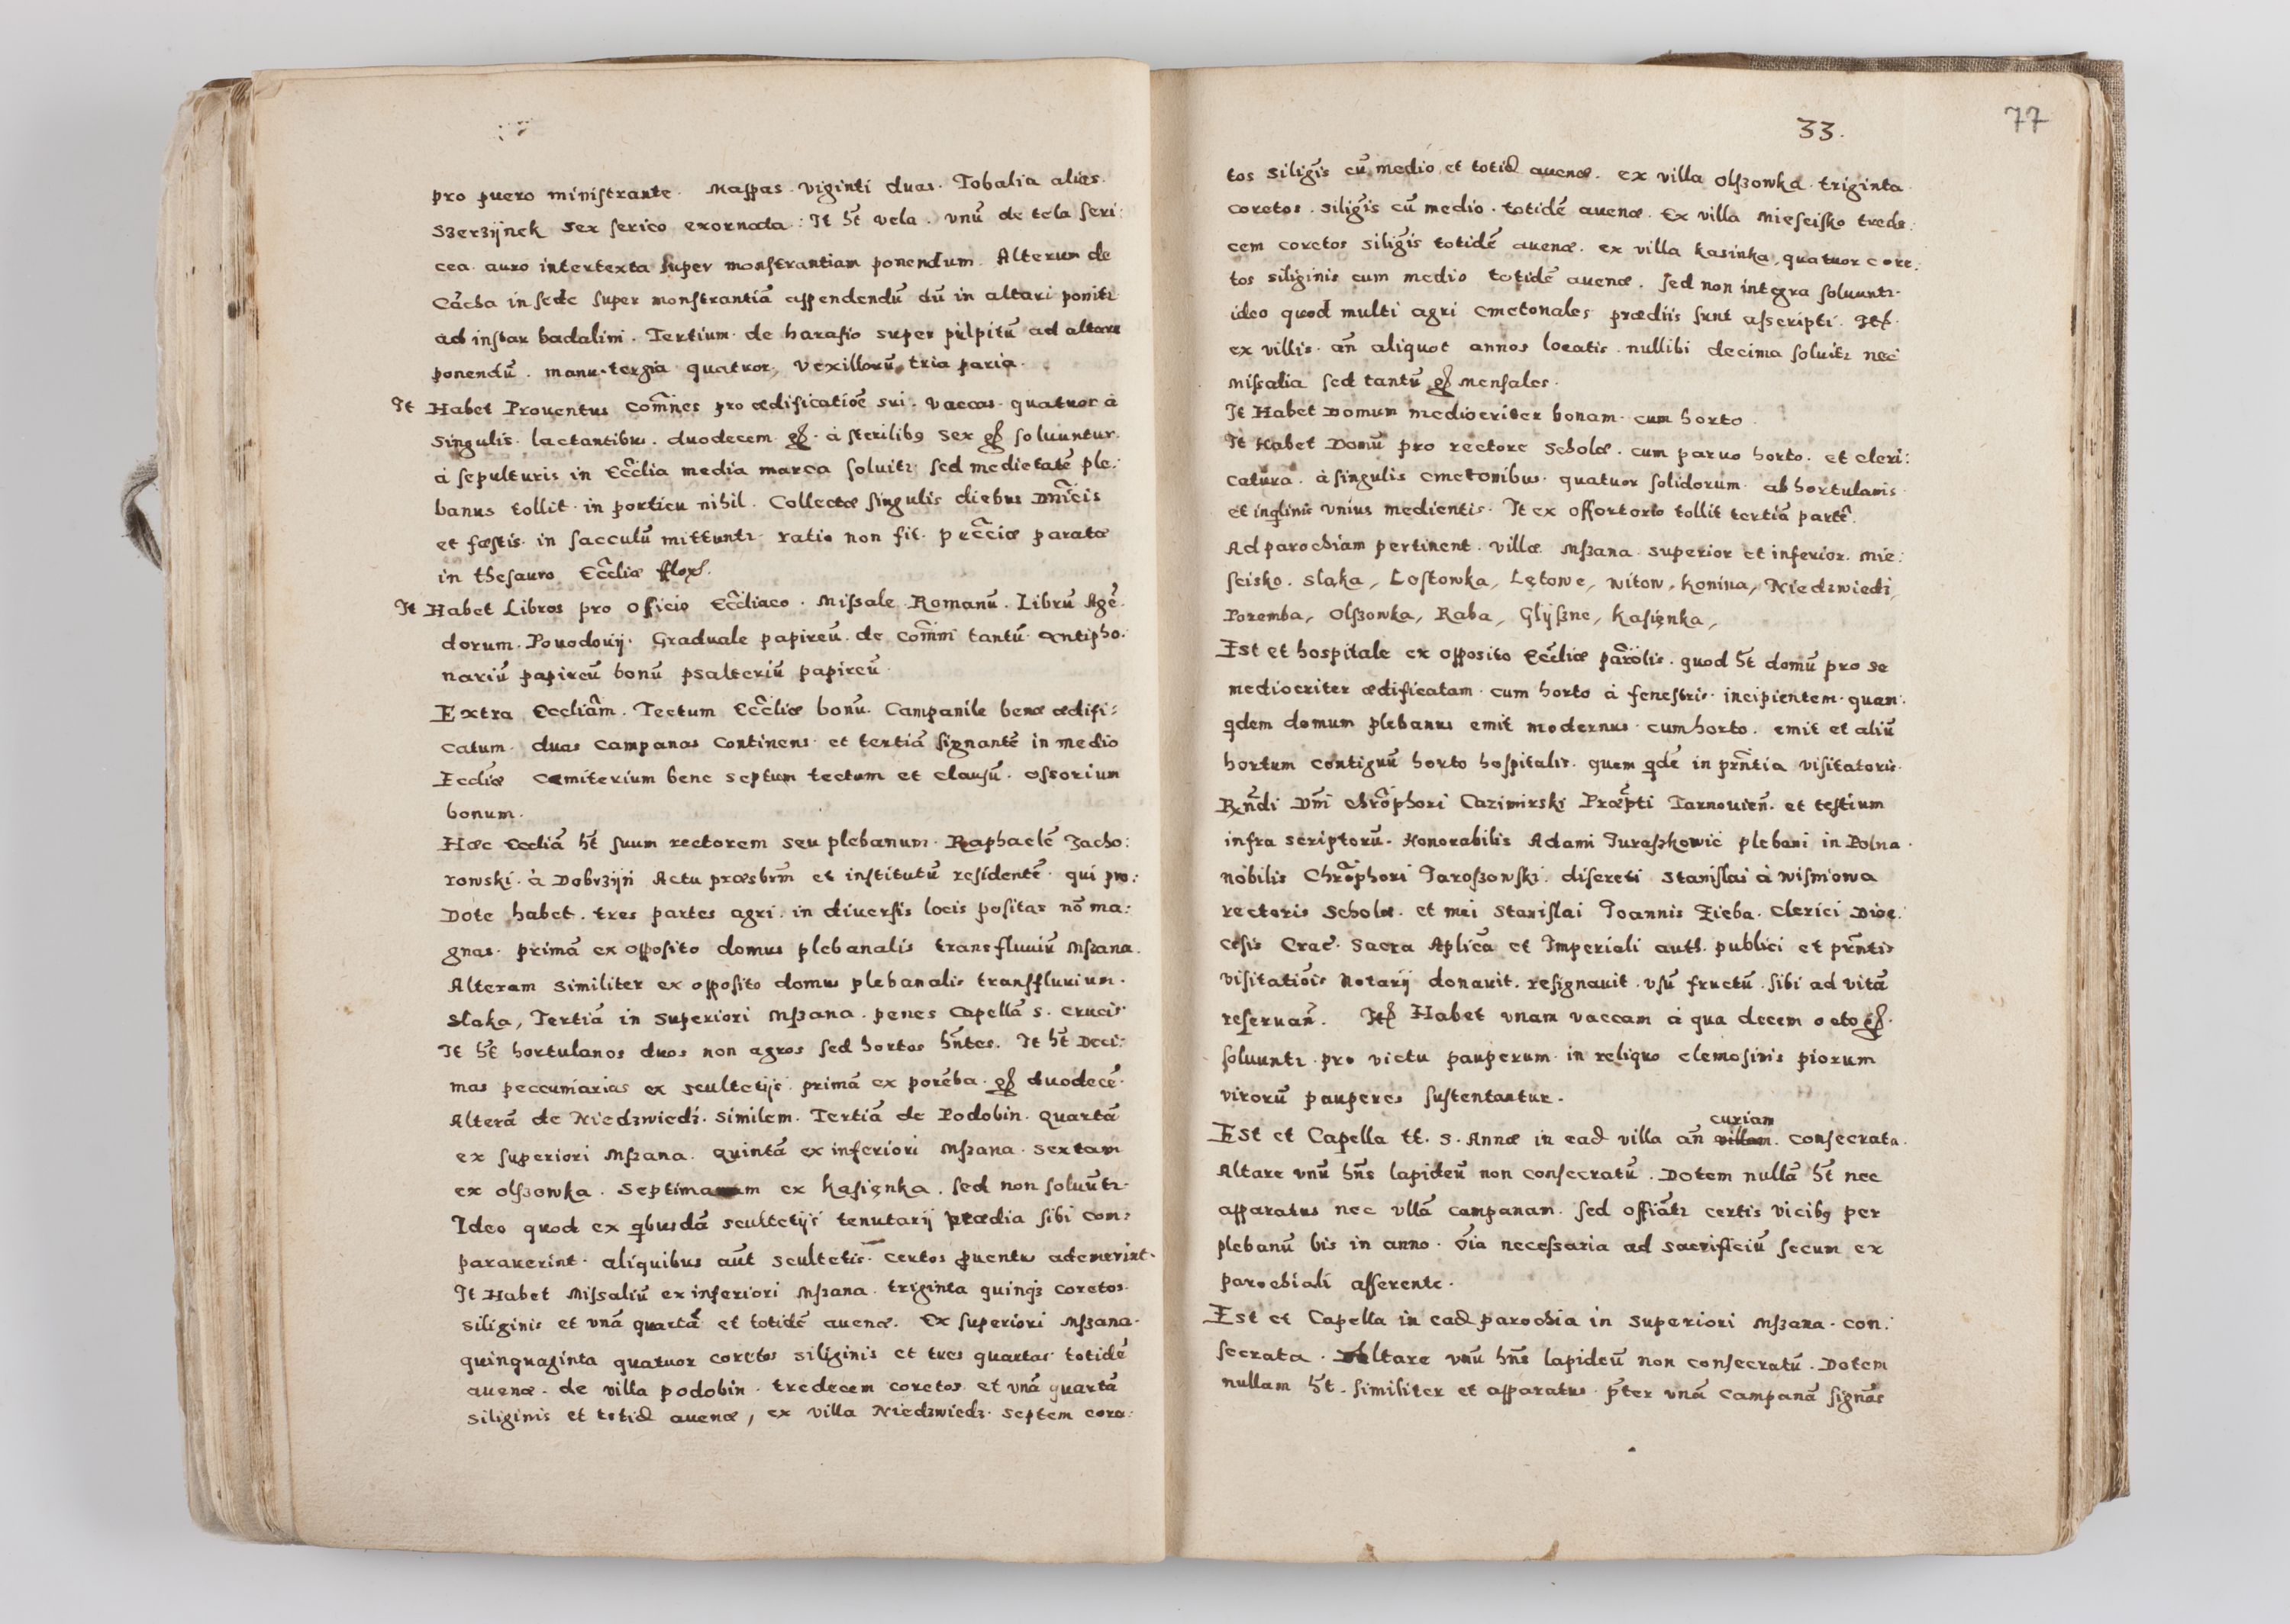 pro puero ministrante. Mappas. viginti duas. Tobalia alias.
Szerzÿnek sex serico exornata: It h̃t vela. vnũ de tela seri:
cea auro intertexta super monstrantiam ponendum. Alterum de
in sede super monstrantiã appendendũ dũ in altari ponitr
ad instar badalini. Tertium. de harasio super pulpitũ ad altare
ponendũ. manu-tergia quatuor, vexillorũ tria paria.
It Habet Prouentus com̃nes pro ædificatiõe sui. vaccas. quatuor à
singulis. lactantibus. duodecem gſ. à sterilib9 sex gſ soluuntur.
à sepulturis in Ecc̃lia media marca soluitr sed medietatẽ ple:
banus tollit. in porticu nihil. Collectæ singulis diebus Dñicis
et fæstis. in sacculũ mittuntr. ratio non fit. pecc̃iæ paratæ
in thesauro Ecc̃liæ
It Habet Libros pro officio Ecc̃liaco. Missale Romanũ. Librũ Agẽ.
dorum. Pouodouij. Graduale papireũ. de com̃ni tantũ antipho:
nariũ papireũ bonũ psalteriũ papireũ.
Extra Eccliãm. Tectum Ecc̃liæ bonũ. Campanile bene ædifi:
catum. duas campanas continens. et tertiã signantẽ in medio
Eccliæ Cæmiterium bene septum tectum et clausũ. ossorium
bonum.
Hæc Eccliã h̃t suum rectorem seu plebanum. Raphaelẽ Zacho:
rowski. à Dobrzÿn Actu præsbr̃m et institutũ residentẽ. qui pro:
Dote habet. tres partes agri. in diuersis locis positas nõ ma:
gnas. primã ex opposito domus plebanalis trans fluuiũ Mszana.
Alteram similiter ex opposito domus plebanalis trans fluuium.
Slaka, Tertiã in superiori Mszana. penes Capellã S. Crucis
It h̃t hortulanos duos non agros sed hortos hñtes. It h̃t Deci:
mas peccuniarias ex scultetijs. primã ex porẽba. gſ duodecẽ.
Alterã de Niedzwiedz. similem. Tertiã de Podobin. quartã
ex superiori Mszana. quintã ex inferiori Mszana. sextam
ex olszowka. Septimam ex kasięnka. sed non soluũtr.
Ideo quod ex qbusdã scultetijs tenutarij prædia sibi com:
parauerint. aliquibus aũt scultetis. certos prouentus ademerint.
It Habet Missaliũ ex inferiori Mszana. triginta quinq3 coretos.
siliginis et vnã quartã et totidẽ auenæ. Ex superiori Mszana.
quinquaginta quatuor coretos siliginis et tres quartas totidẽ
auenæ. de villa podobin. tredecem coretos et vnã quartã
siliginis et totid auenæ, ex villa Niedzwiedz. septem core:
33.
77
tos siligĩs cũ medio et totid auenæ. ex villa olszowka. triginta
coretos. siligĩs cũ medio. totidẽ auenæ. Ex villa Miescisko trede:
cem coretos siligĩs totidẽ auenæ. ex villa kasinka, quatuor core:
tos siliginis cum medio totidẽ auenæ. sed non integra soluuntr.
ideo quod multi agri cmetonales prædiis sunt asscripti. Itẽ.
ex villis. añ aliquot annos locatis. nullibi decima soluitr nec
missalia sed tantũ gſ mensales.
It Habet Domum mediocriter bonam. cum horto.
It Habet Domũ pro rectore Scholæ. cum paruo horto. et cleri:
catura. à singulis cmetonibus. quatuor solidorum. ab hortulanis.
et inqlinis vnius medientis. It ex offertorio tollit tertiã partẽ.
Ad parochiam pertinent. villæ Mszana superior et inferior. Mie:
scisko. Slaka, Lostowka, Lętowe, Witow, Konina, Niedzwiedz,
Poremba, Olszowka, Raba, Glÿszne, Kasięnka,
Est et hospitale ex opposito Ecc̃liæ parõlis. quod h̃t domũ pro se
mediocriter ædificatam. cum horto à fenestris. incipientem. quan:
qdem domum plebanus emit modernus. cum horto. emit et aliũ
hortum contiguũ horto hospitalis. quem qdẽ in prñtia visitatoris.
Rñdi Dñi Chrõphori Cazimirski Præp̃ti Tarnouieñ. et testium
infra scriptorũ. Honorabilis Adami Juraszkowic plebani in Dolna.
nobilis Chrõphori Jaroszowski. discreti Stanislai à Wisniowa
rectoris Scholæ. et mei Stanislai Joannis Zieba. clerici Dioe:
cesis Crac̃. Sacra Aplicã et Imperiali auth. publici et prñtis
visitatiõis Notarij donauit. resignauit. vsũ fructũ. sibi ad vitã
reseruañ. Itẽ Habet vnam vaccam à qua decem octo gſ.
soluuntr. pro victu pauperum. in reliquo elemosinis piorum
virorũ pauperes sustentantur.
curiam
Est et Capella tt. S. Annæ in ead villa añ villam. consecrata.
Altare vnũ hñs lapideũ non consecratũ. Dotem nullã h̃t nec
apparatus nec vllã campanam. sed offiãtr certis vicib9 per
plebanũ bis in anno. oĩa necessaria ad sacrificiũ secum ex
parochiali afferente.
Est et Capella in ead parochia in superiori Mszana. con:
secrata. Altare vnũ hñs lapideũ non consecratũ. Dotem
nullam h̃t. similiter et apparatus. p̃ter vnã campanã signãs